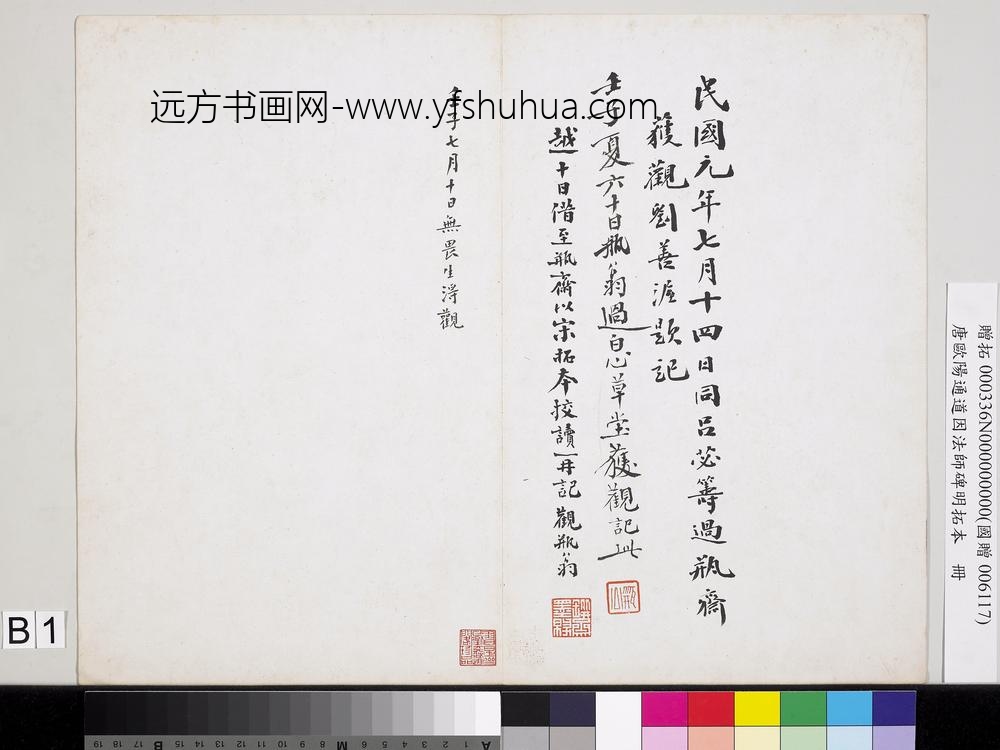 民國元年七月十四日同呂苾籌過瓶齋
獲觀劉善渥題記
壬子夏六十日瓶翁過自心草堂獲觀記此
越十日借至瓶齋以宋拓本挍讀一再記 觀瓶翁
壬子七月十日無畏生得觀
远方书画网-www.yfshuhua.com
贈拓 000336N000000000(國贈 006117)
唐歐陽通道因法師碑明拓本 冊
B1